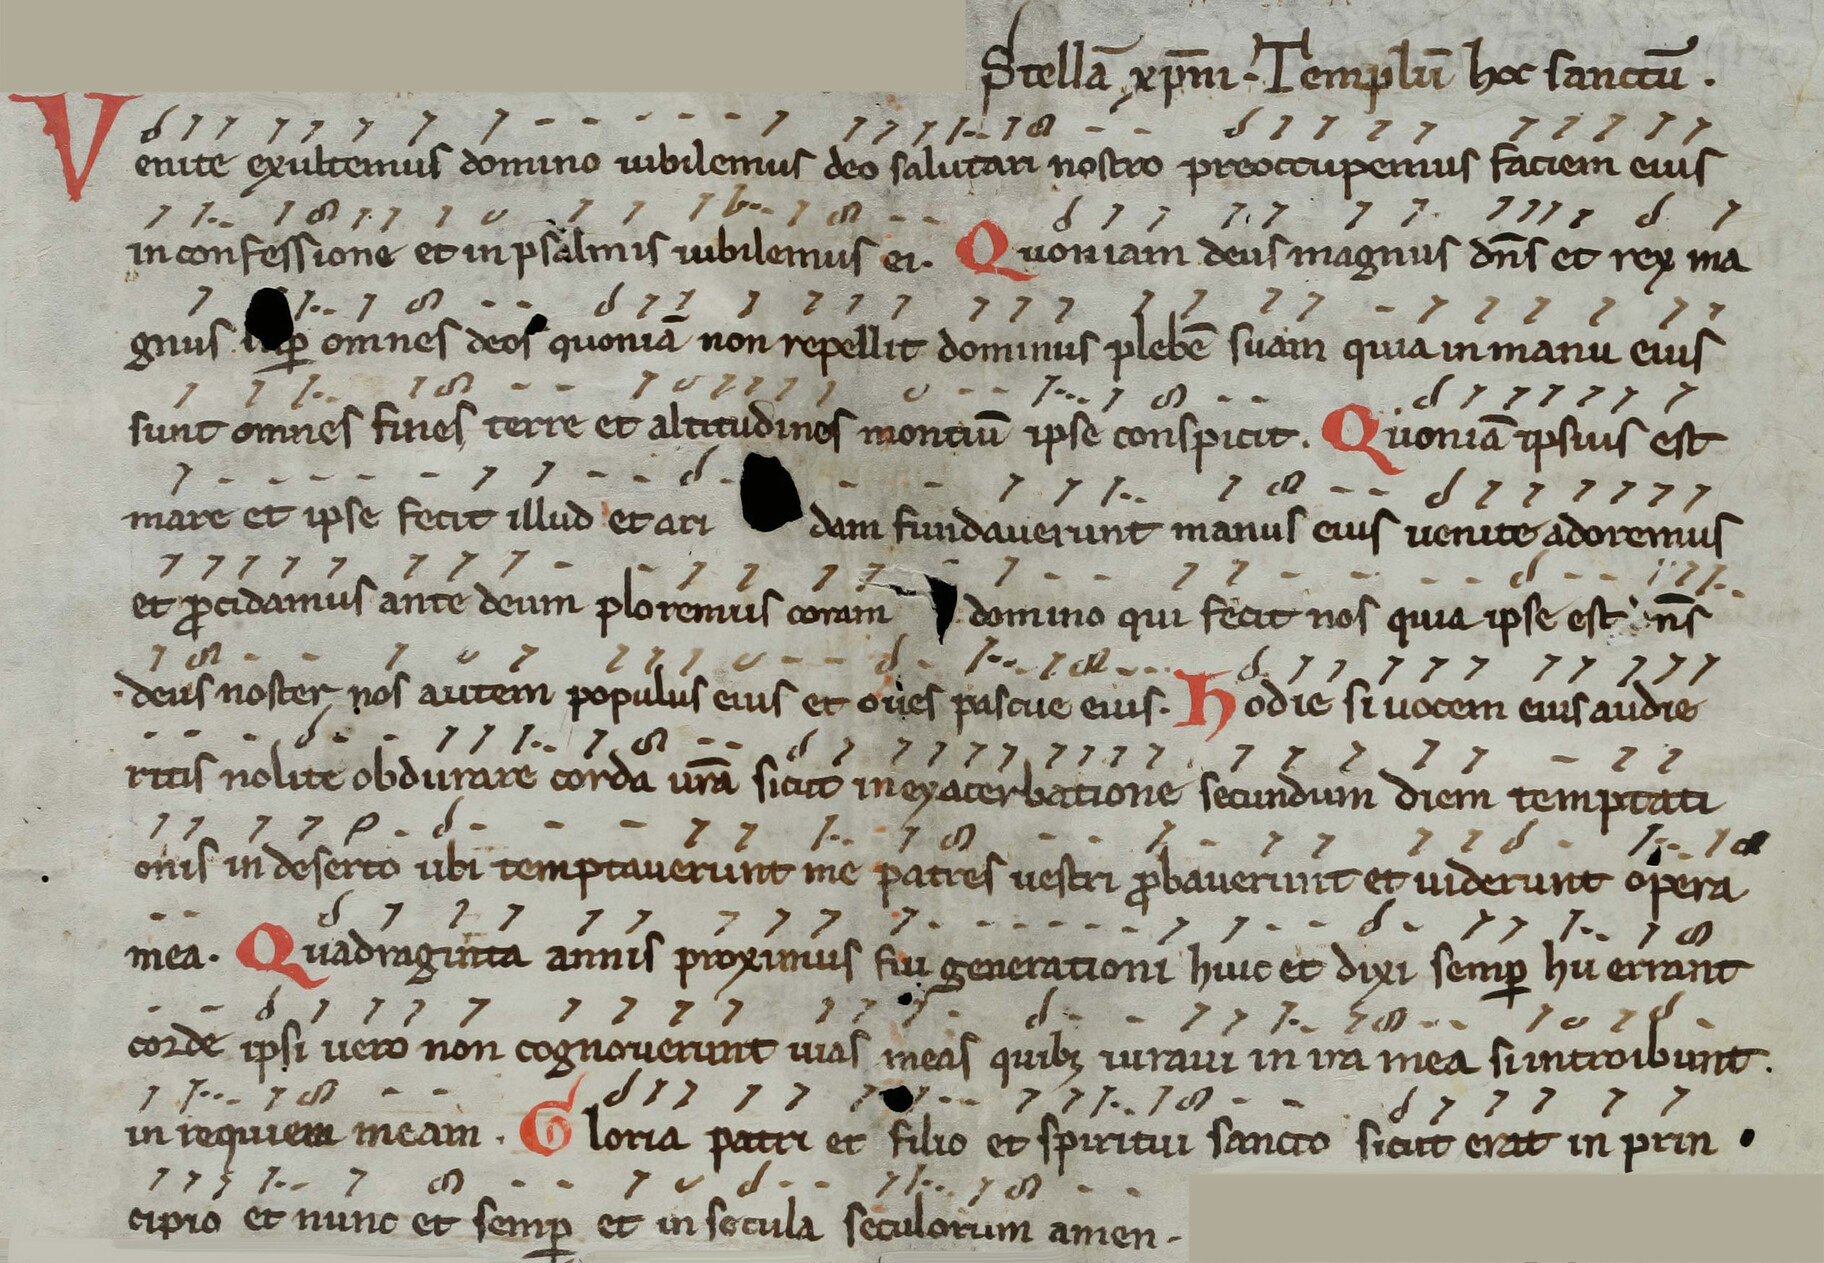 Stellā xp̄m · Templū hoc sanctū .
Venite exultemus domino iubilemus deo salutari nostro preoccupemus faciem eius
in confessione et in psalmis iubilemus ei. Quoniam deus magnus dn̄s et rex ma
gnus omnes deos quoniā non repellit dominus plebē suam quia in manu eius
sunt omnes fines terre et altitudines montiū ipse conspicit. Quoniā ipsius est
mare et ipse fecit illud et ari dam fundauerunt manus eius uenite adoremus
et ꝓcidamus ante deum ploremus coram domino qui fecit nos quia ipse est n̄s
deus noster nos autem populus eius et oues pascue eius. Hodie si uocem eius audie
ritis nolite obdurare corda ur̄a sicut in exacerbatione secundum diem temptati
onis in deserto ubi temptauerunt me patres uestri ꝓbauerunt et uiderunt opera
mea. Quadraginta annis proximus fui generationi huic et dixi semꝑ hii errant
corde ipsi uero non cognouerunt uias meas quibꝫ iuraui in ira mea si introibunt .
in requiem meam . Gloria patri et filio et spiritui sancto sicut erat in prin
cipio et nunc et semꝑ et in secula seculorum amen.